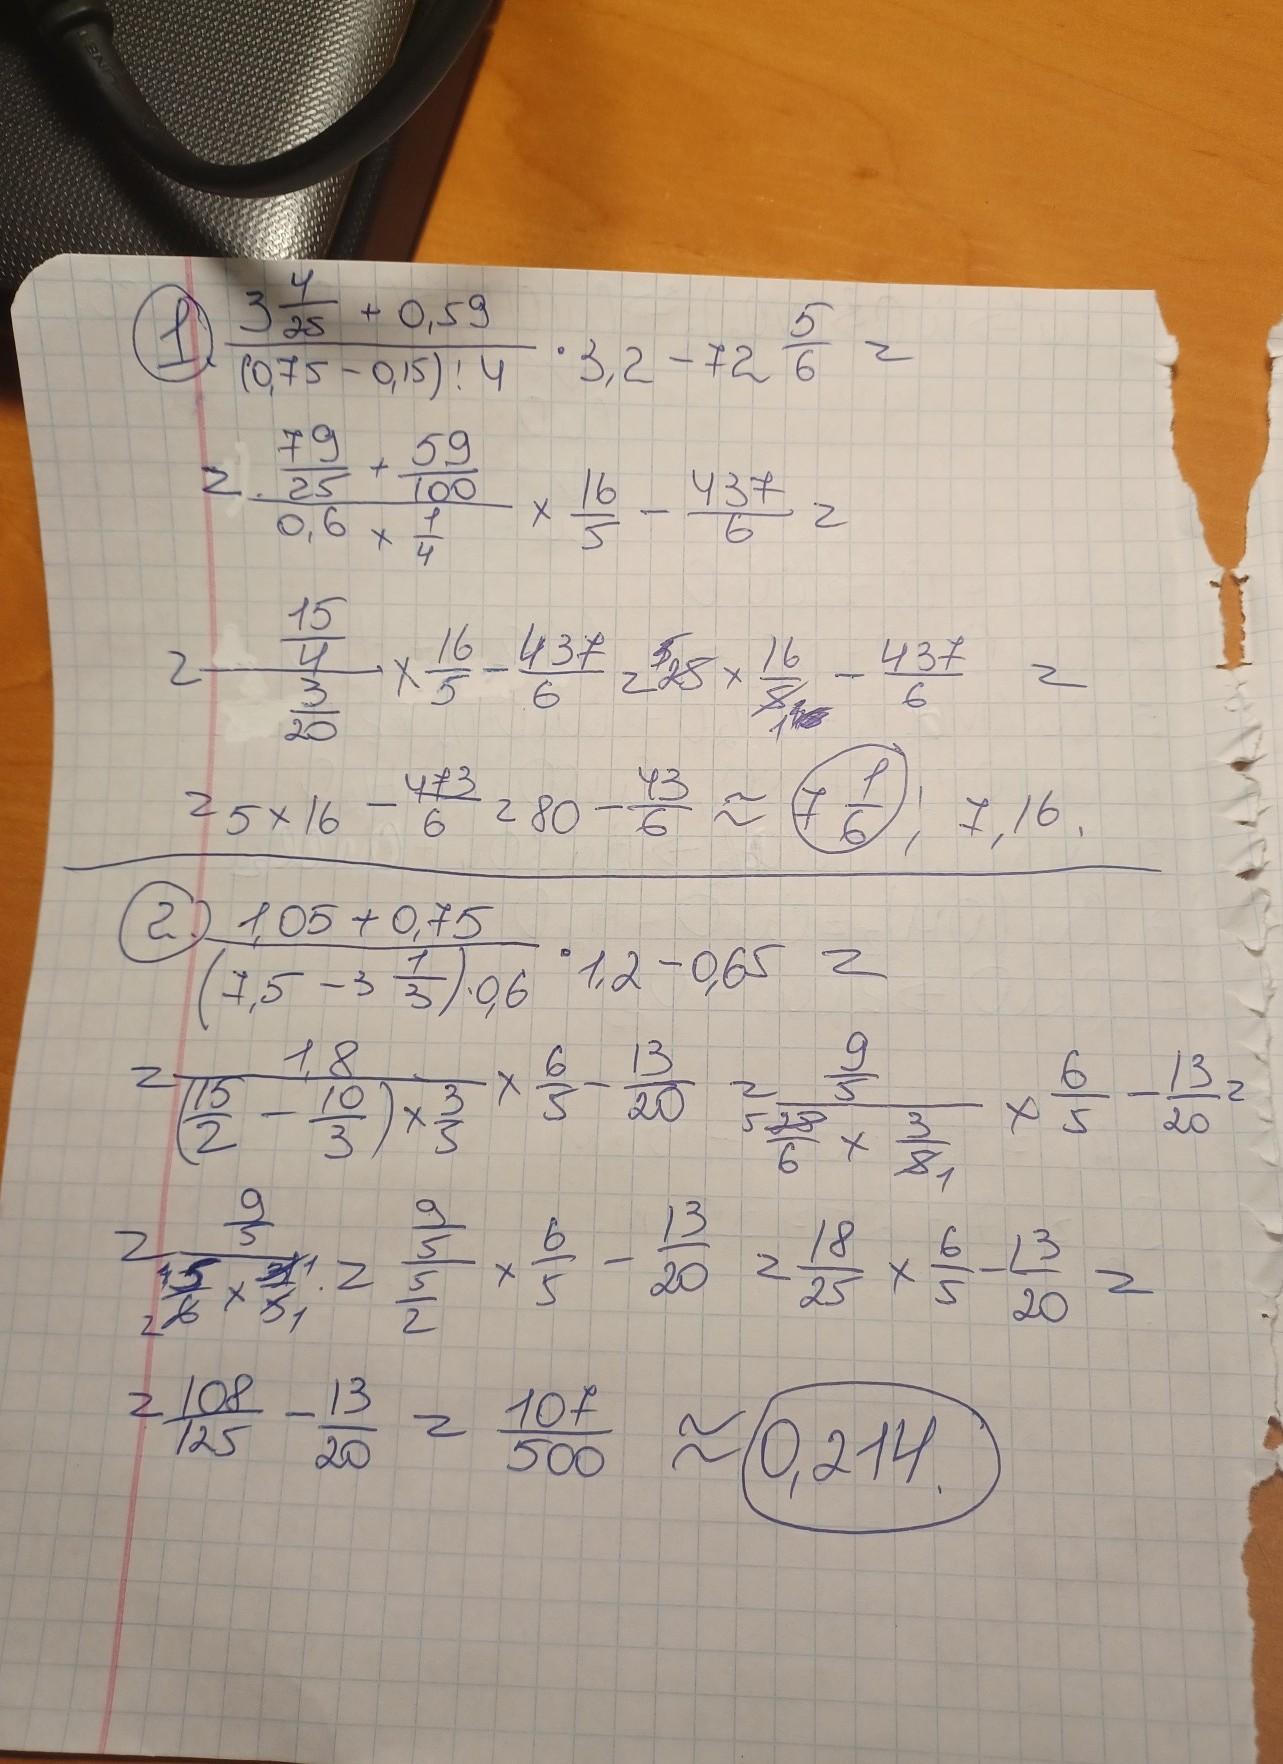 1. (3 4/25 + 0,59)/((0,75 - 0,15) : 4) · 3,2 - 72 5/6 =
= (79/25 + 59/100)/(0,6 × 1/4) × 16/5 - 437/6 =
= (15/4)/(3/20) × 16/5 - 437/6 = 5 25 × 16/5 1 - 437/6 =
= 5 × 16 - 473/6 = 80 - 43/6 ≈ 7 1/6 ; 7,16.
2. (1,05 + 0,75)/((7,5 - 3 1/3) · 0,6) · 1,2 - 0,65 =
= 1,8/((15/2 - 10/3) × 3/5) × 6/5 - 13/20 = (9/5)/(5 25/6 × 3/5 1) × 6/5 - 13/20 =
= (9/5)/(5/6 2 × 3/5 1 1) = (9/5)/(5/2) × 6/5 - 13/20 = 18/25 × 6/5 - 13/20 =
= 108/125 - 13/20 = 107/500 ≈ 0,214.